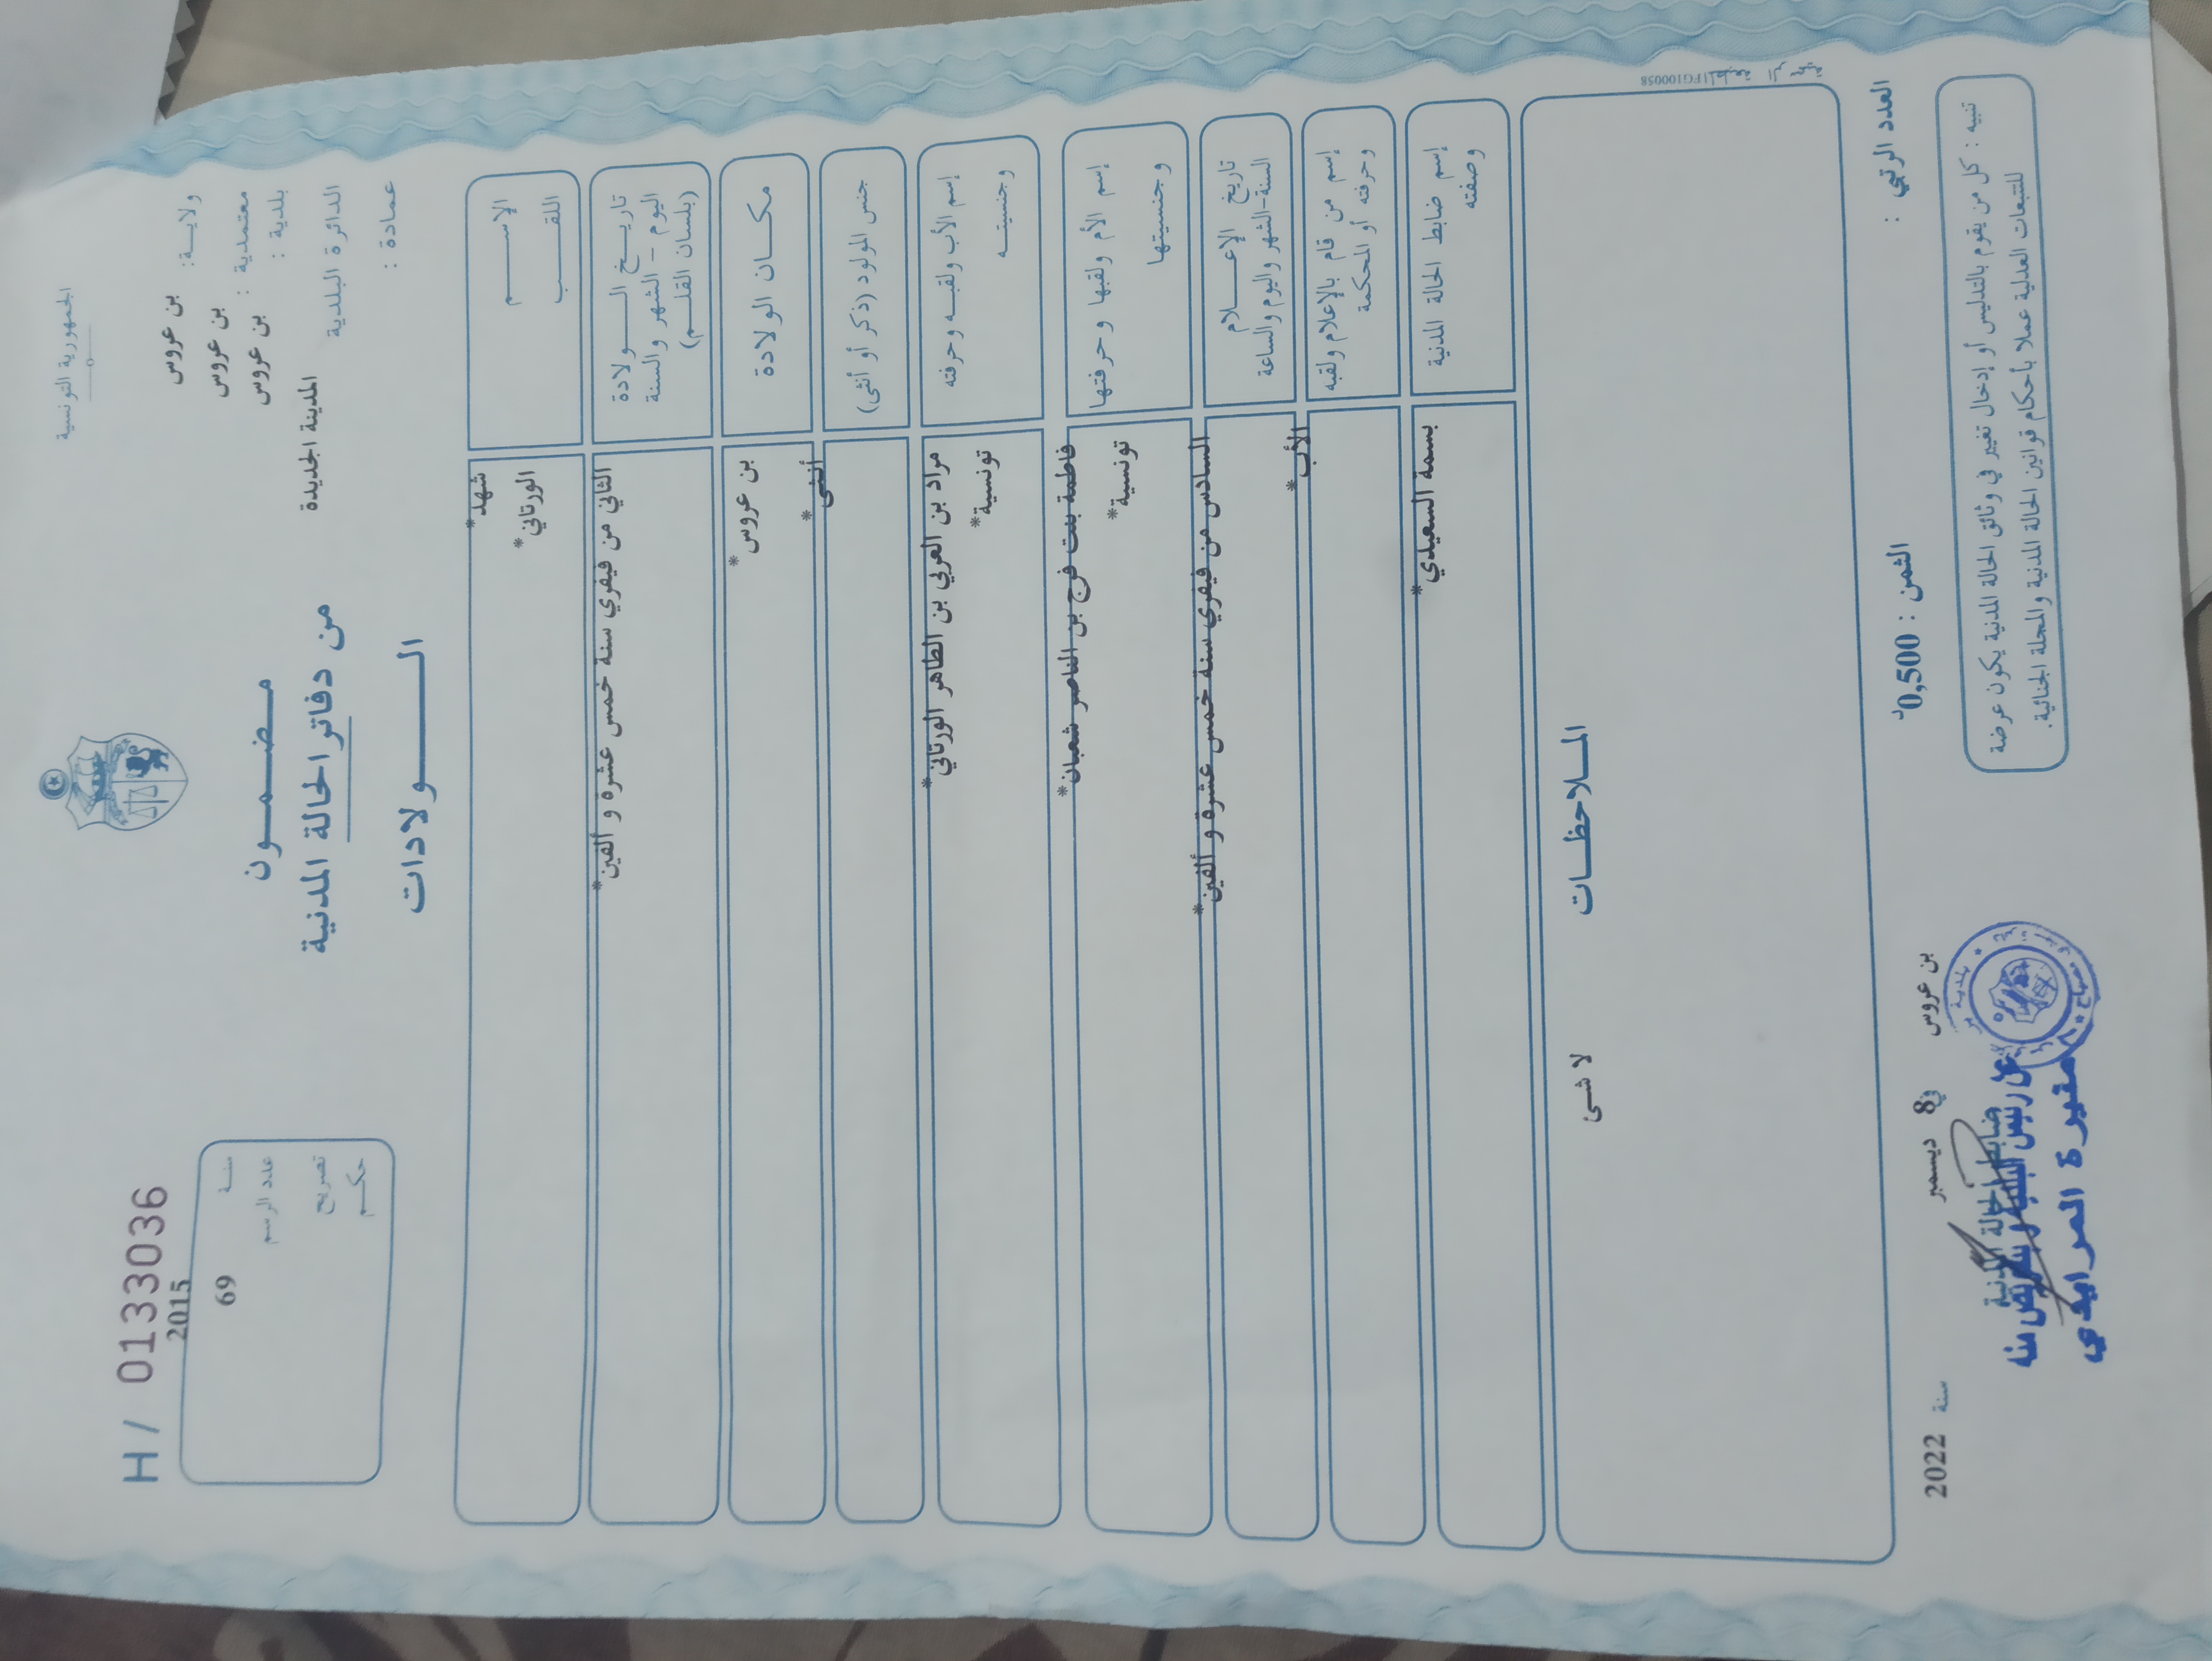 الجمهورية التونسية
ولايــة: بن عروس
معتمدية : بن عروس
بلدية : بن عروس
الدائرة البلدية المدينة الجديدة
عمادة :
مـضـمــون
من دفاتر الحالة المدنية
الــــولادات
H/ 0133036
سنــة 2015
عدد الرسم 69
تصريح
حكــم
الإســــم شهد*
اللقــب الورتاني*
تاريــخ الـــولادة الثاني من فيفري سنة خمس عشرة و ألفين*
اليوم - الشهر والسنة
(بلسان القلــم)
مكــان الولادة بن عروس*
جنس المولود (ذكر أو أنثى) أنثى*
إسم الأب ولقبـه وحرفته مراد بن العربي بن الطاهر الورتاني*
وجنسيتـه تونسية*
إسم الأم ولقبها وحرفتها فاطمة بنت فرج بن الناصر شعبان*
وجنسيتها تونسية*
تاريخ الإعـــلام السادس من فيفري سنة خمس عشرة و ألفين*
السنة-الشهر واليوم والساعة
إسم من قام بالإعلام ولقبه الأب*
وحرفته أو المحكمة
إسم ضابط الحالة المدنية بسمة السعيدي*
وصفته
المــلاحظــات
لا شئ
المطبعة الرسمية FG100058
العدد الرتبي :
الثمن : 0,500د
بن عروس في 8 ديسمبر سنة 2022
ضابط الحالة المدنية
عن رئيس البلدية وبتفويض منه
منيرة المرايدي
تنبيه : كل من يقوم بالتدليس أو إدخال تغيير في وثائق الحالة المدنية يكون عرضة
للتتبعات العدلية عملا بأحكام قوانين الحالة المدنية والمجلة الجنائية.